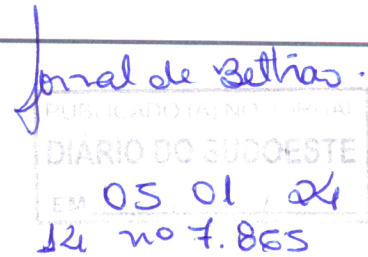 Jornal de Beltrão.
PUBLICADO (A) NO JORNAL
DIÁRIO DO SUDOESTE
EM 05 01 24
14 nº 7.865